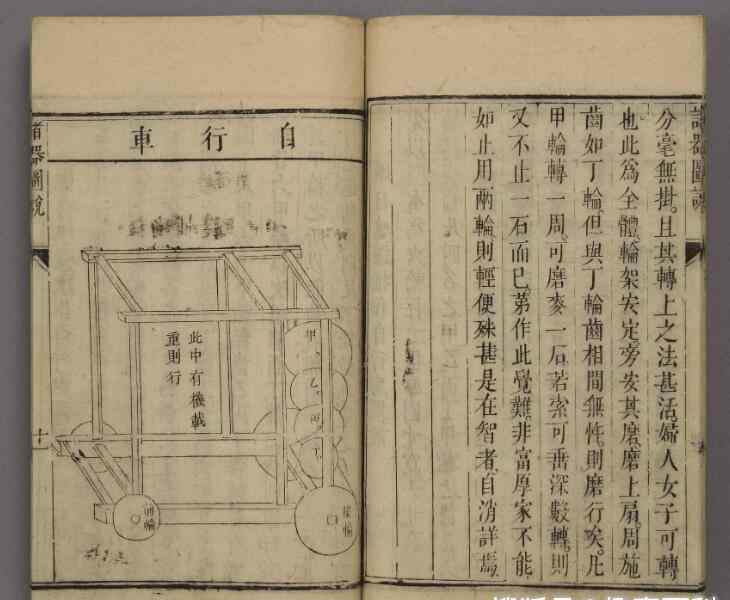 諸器圖說
分毫無掛。且其轉上之法甚活。婦人女子可轉
也。此為全體輪架安定。旁安其磨。磨上扇。周施
齒如丁輪。但與丁輪齒相間無忤。則磨行矣。凡
甲輪轉一周。可磨麥一石。若索可垂深數轉。則
又不止一石而已。第作此覺難。非富厚家不能。
如止用兩輪。則輕便殊甚。是在智者。自消詳焉。
自行車
此中有機載
重則行
甲
乙
丙
丁
前輪
後輪
諸器圖說
十